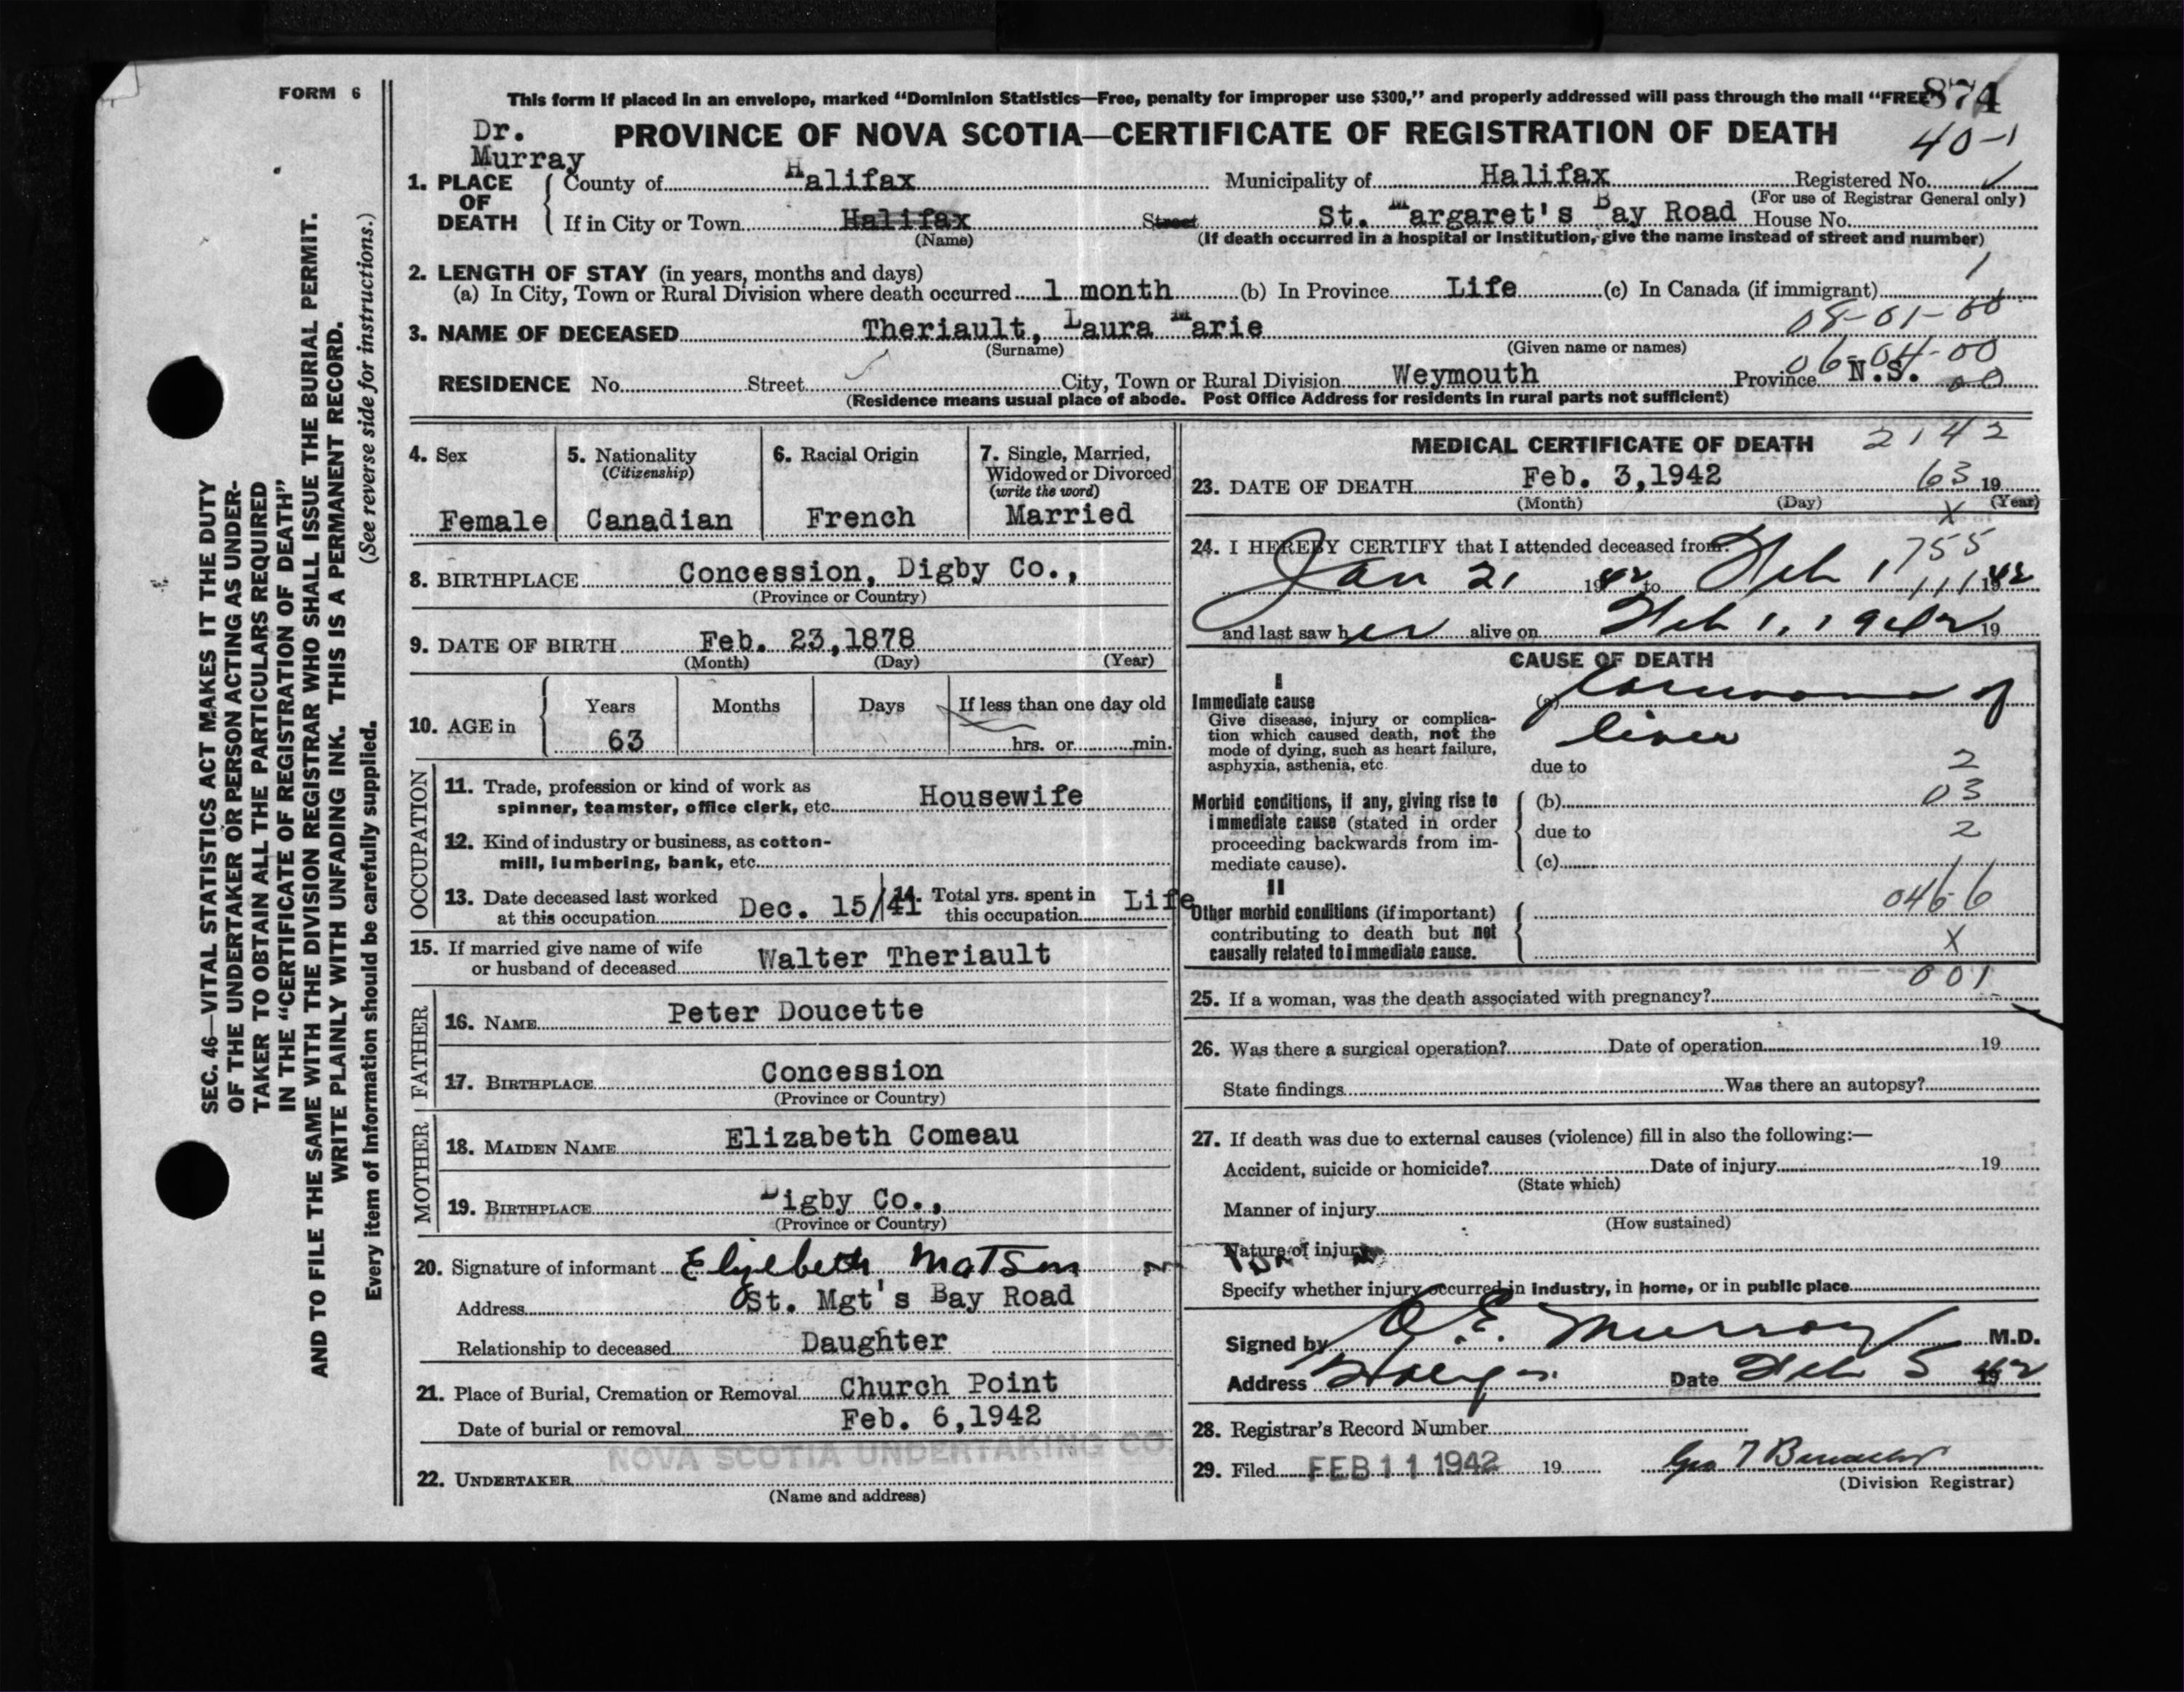 FORM 6
This form if placed in an envelope, marked “Dominion Statistics—Free, penalty for improper use $300,” and properly addressed will pass through the mail “FREE”
874
Dr.
Murray
PROVINCE OF NOVA SCOTIA—CERTIFICATE OF REGISTRATION OF DEATH
40-1
1. PLACE OF DEATH
County of Halifax Municipality of Halifax Registered No.
(For use of Registrar General only)
If in City or Town Halifax Street St. Margaret's Bay Road House No.
(Name) (If death occurred in a hospital or institution, give the name instead of street and number)
2. LENGTH OF STAY (in years, months and days)
(a) In City, Town or Rural Division where death occurred 1 month (b) In Province Life (c) In Canada (if immigrant)
08-01-00
3. NAME OF DECEASED Theriault, Laura Marie
(Surname) (Given name or names)
06-04-00
RESIDENCE No. Street City, Town or Rural Division Weymouth Province N.S. 00
(Residence means usual place of abode. Post Office Address for residents in rural parts not sufficient)
4. Sex
Female
5. Nationality
(Citizenship)
Canadian
6. Racial Origin
French
7. Single, Married,
Widowed or Divorced
(write the word)
Married
8. BIRTHPLACE Concession, Digby Co.,
(Province or Country)
9. DATE OF BIRTH Feb. 23,1878
(Month) (Day) (Year)
10. AGE in
Years Months Days If less than one day old
63 hrs. or min.
OCCUPATION
11. Trade, profession or kind of work as
spinner, teamster, office clerk, etc. Housewife
12. Kind of industry or business, as cotton-
mill, lumbering, bank, etc.
13. Date deceased last worked
at this occupation Dec. 15/41
14. Total yrs. spent in
this occupation Life
15. If married give name of wife
or husband of deceased Walter Theriault
FATHER
16. NAME Peter Doucette
17. BIRTHPLACE Concession
(Province or Country)
MOTHER
18. MAIDEN NAME Elizabeth Comeau
19. BIRTHPLACE Digby Co.,
(Province or Country)
20. Signature of informant Elizebeth Matson
Address St. Mgt's Bay Road
Relationship to deceased Daughter
21. Place of Burial, Cremation or Removal Church Point
Date of burial or removal Feb. 6,1942
NOVA SCOTIA UNDERTAKING CO.
22. UNDERTAKER
(Name and address)
MEDICAL CERTIFICATE OF DEATH
2142
23. DATE OF DEATH Feb. 3,1942 63 19
(Month) (Day) (Year)
X
24. I HEREBY CERTIFY that I attended deceased from:
755
Jan 21 1942 to Feb 1 111 1942
and last saw her alive on Feb 1, 1942 19
CAUSE OF DEATH
I
Immediate cause
Give disease, injury or complica-
tion which caused death, not the
mode of dying, such as heart failure,
asphyxia, asthenia, etc.
(a) Carcinoma of
liver
due to
2
Morbid conditions, if any, giving rise to
immediate cause (stated in order
proceeding backwards from im-
mediate cause).
(b) 03
due to 2
(c)
II
Other morbid conditions (if important)
contributing to death but not
causally related to immediate cause.
X
001
25. If a woman, was the death associated with pregnancy?
26. Was there a surgical operation? Date of operation 19
State findings Was there an autopsy?
27. If death was due to external causes (violence) fill in also the following:—
Accident, suicide or homicide? Date of injury 19
(State which)
Manner of injury
(How sustained)
Nature of injury
Specify whether injury occurred in industry, in home, or in public place
Signed by Murray M.D.
Address Date Feb 5 1942
28. Registrar's Record Number
29. Filed FEB 11 1942 19
(Division Registrar)
SEC. 46—VITAL STATISTICS ACT MAKES IT THE DUTY
OF THE UNDERTAKER OR PERSON ACTING AS UNDER-
TAKER TO OBTAIN ALL THE PARTICULARS REQUIRED
IN THE “CERTIFICATE OF REGISTRATION OF DEATH”
AND TO FILE THE SAME WITH THE DIVISION REGISTRAR WHO SHALL ISSUE THE BURIAL PERMIT.
WRITE PLAINLY WITH UNFADING INK. THIS IS A PERMANENT RECORD.
Every item of information should be carefully supplied. (See reverse side for instructions.)